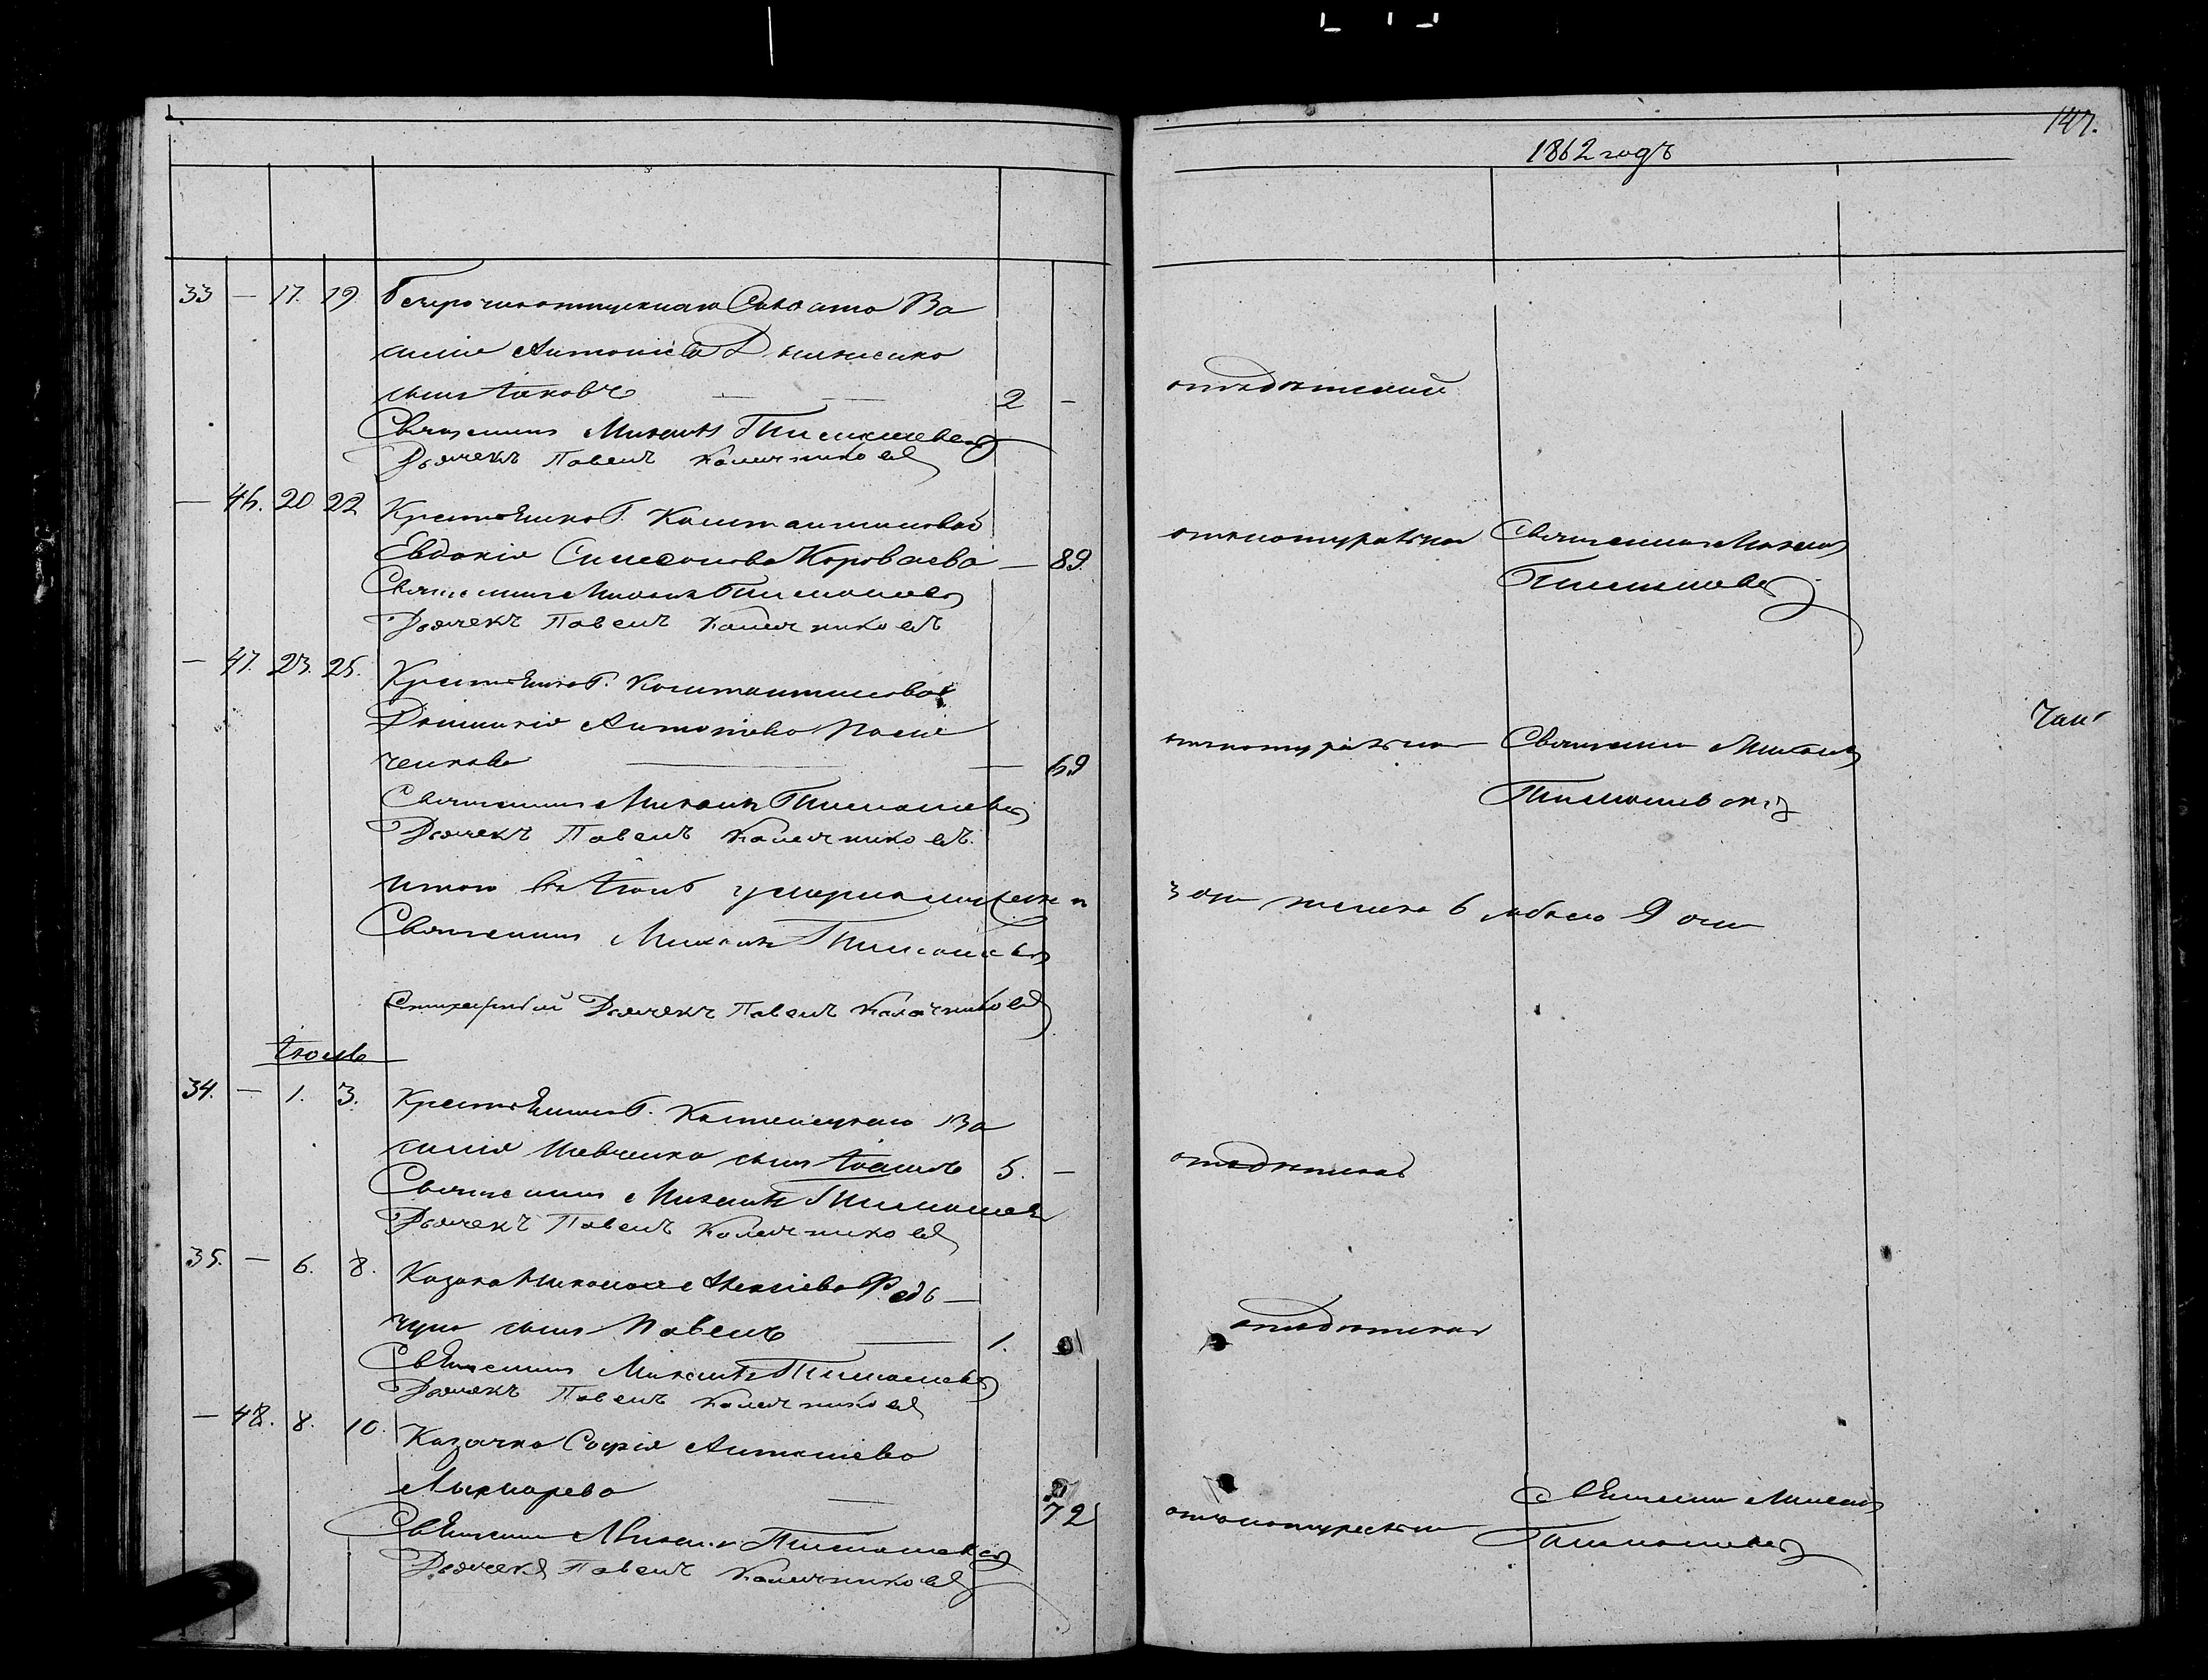 147.
1862 годъ
33 — 17. 19 Безсрочноотпускнаго Солдата Ва
силія Антоніева
сынъ Іаковъ — — 2 —
отъ
Священникъ Михаилъ Тимошевскій
Дьячекъ Павелъ Калачниковъ
— 46. 20 22 Крестьянка Г. Константиновой
Евдокія Симеонова Короваева — 89.
отъ натуральной Священникъ Михаилъ
Тимошевскій
Священникъ Михаилъ Тимошевскій
Дьячекъ Павелъ Калачниковъ
— 47. 23. 25. Крестьянка Г. Константиновой
Антоніева
ченкова — — 69
отъ натуральной Священникъ Михаилъ
Тимошевскій
Священникъ Михаилъ Тимошевскій
Дьячекъ Павелъ Калачниковъ.
Итого въ Іюнѣ умерло мужеска п
3 женска 6 обоего 9
Священникъ Михаилъ Тимошевскій
Стихарный Дьячекъ Павелъ Калачниковъ
Іюль
34. — 1. 3. Крестьянина Г. Ва
силія Шевченка сынъ Іоаннъ 5. —
отъ
Священникъ Михаилъ Тимошевскій
Дьячекъ Павелъ Калачниковъ
35. — 6. 8. Козака Николая Алексіева Федь
чуна сынъ Павелъ — 1.
отъ
Священникъ Михаилъ Тимошевскій
Дьячекъ Павелъ Калачниковъ
— 48. 8. 10. Козачка Софія Антоніева
— 72
отъ натуральной Священникъ Михаилъ
Тимошевскій
Священникъ Михаилъ Тимошевскій
Дьячекъ Павелъ Калачниковъ